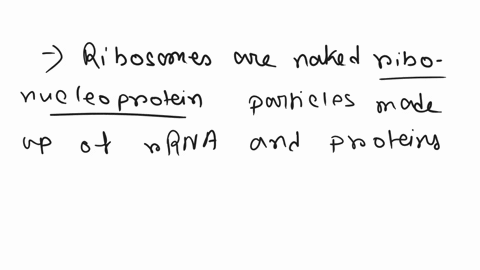 → Ribosomes are naked ribo-
nucleoprotein particles made
up of rRNA and proteins